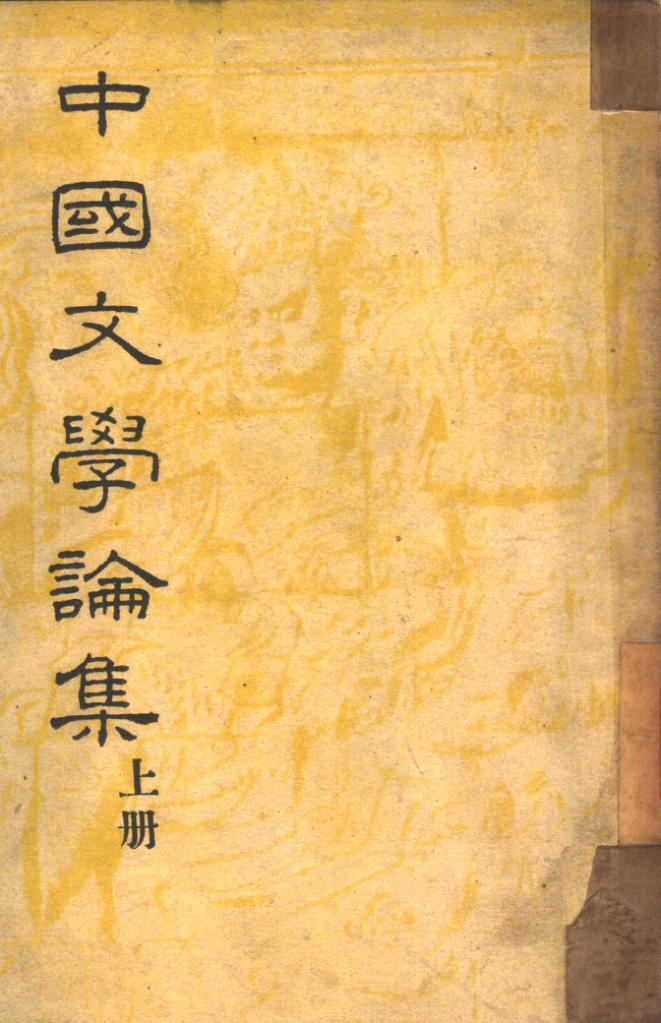 中國文學論集
上册